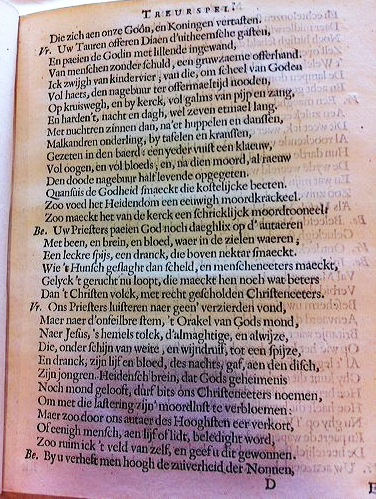 TREURSPEL.
Die zich aen onze Goôn, en Koningen vertasten.
Vr. Uw Tauren offeren Diaen d'uitheemsche gasten,
En paeien de Godin met lillende ingewand,
Van menschen zonder schuld, een gruwzaeme offerhand.
Ick zwijgh van kindervier, van die, om scheel van Goden
Vol haets, den nagebuur ter offermaeltijd nooden,
Op kruiswegh, en by kerck, vol galms van pijp en zang,
En harden't, nacht en dagh, wel zeven etmael lang.
Met nuchteren zinnen dan, na'et huppelen en danssen,
Malkandren onderling, by tafelen en kranssen,
Gezeten in den baerd: een yeder vuist een klaeuw,
Vol oogen, en vol bloeds, en, na dien moord, al raeuw
Den doode nagebuur half levende opgegeten.
Quansuis de Godheid smaeckt die kostelijcke beeten.
Zoo voed het Heidendom een eeuwigh moordkrackeel.
Zoo maeckt het van de kerck een schricklijck moordtooneel.
Be. Uw Priesters paeien God noch daeghlix op d'autaeren
Met been, en brein, en bloed, waer in de zielen waeren;
Een leckre spijs, een dranck, die boven nektar smaeckt.
Wie 't Hunsch geslaght dan scheld, en menscheneeters maeckt,
Gelyck 't gerucht nu loopt, die maeckt hen noch wat beters
Dan 't Christen volck, met recht gescholden Christeneeters.
Vr. Ons Priesters luisteren naer geen' verzierden vond,
Maer naer d'onfeilbre stem, 't Orakel van Gods mond,
Naer Jesus, 's hemels tolck, d'almaghtige, en alwijze,
Die, onder schijn van weite, en wijndruif, tot een spijze,
En dranck, zijn lijf en bloed, des nachts, gaf, aen den disch,
Zijn jongren. Heidensch brein, dat Gods geheimenis
Noch mond gelooft, durf bits ons Christeneeters noemen,
Om met die lastering zijn' moordlust te verbloemen:
Maer zoo door ons autaer des Hooghsten eer verkort,
Of eenigh mensch, aen lijf of lidt, beledight word,
Zoo ruim ick 't veld van zelf, en geef u dit gewonnen.
Be. By u verheft men hoogh de zuiverheid der Nonnen,
D